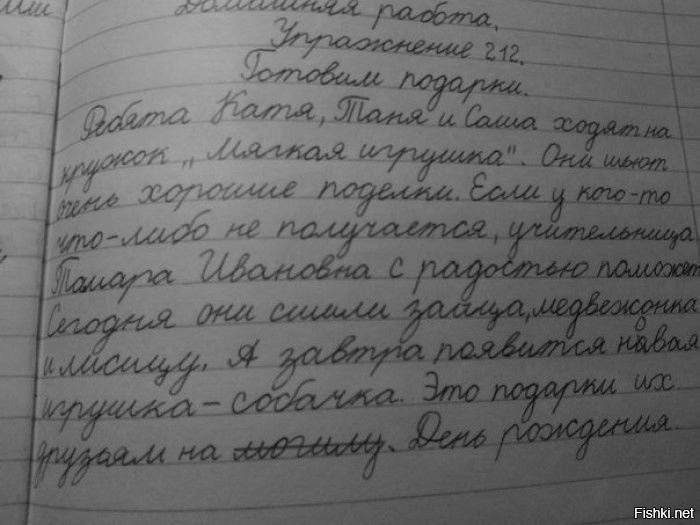 Домашняя работа.
Упражнение 212.
Готовим подарки.
Ребята Катя, Таня и Саша ходят на
кружок „Мягкая игрушка". Они шьют
очень хорошие поделки. Если у кого-то
что-либо не получается, учительница
Тамара Ивановна с радостью поможет
Сегодня они сшили зайца, медвежонка
и лисицу. А завтра появится новая
игрушка – собачка. Это подарки их
друзьям на могилу. День рождения.
Fishki.net